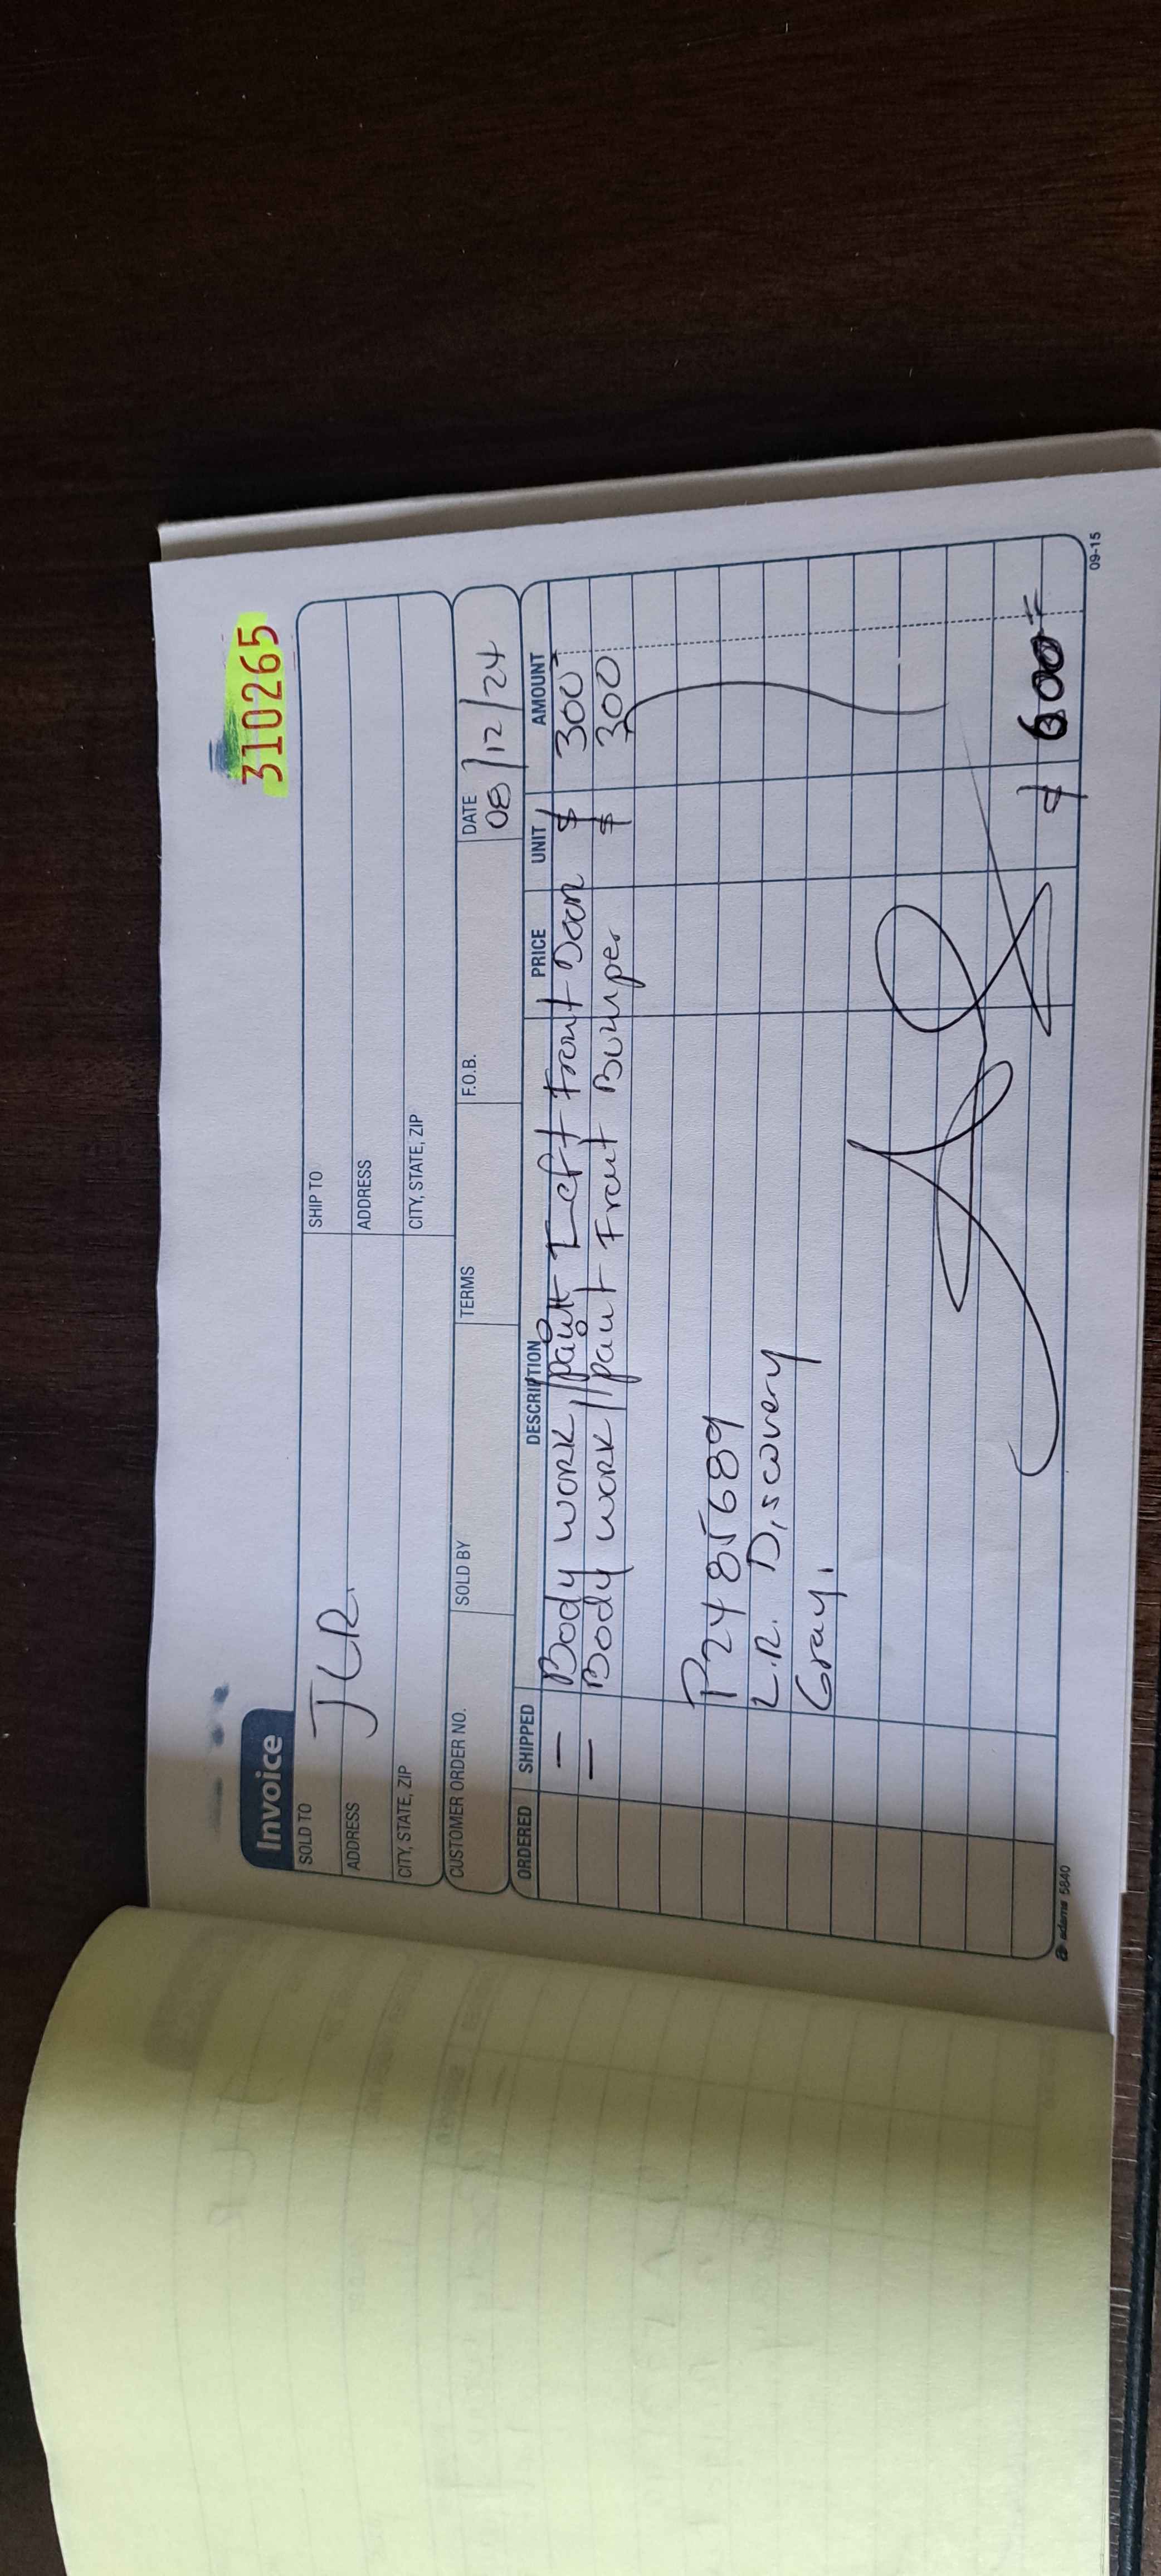 310265
Invoice
SOLD TO JLR.
SHIP TO
ADDRESS
ADDRESS
CITY, STATE, ZIP
CITY, STATE, ZIP
CUSTOMER ORDER NO. SOLD BY TERMS F.O.B. DATE
08/12/24
ORDERED SHIPPED DESCRIPTION PRICE UNIT AMOUNT
— Body work/paint Left Front Door $ 300
— Body work/paint Front Bumper $ 300
P2485689
L.R. Discovery
Gray.
$ 600
adams 5840
09-15